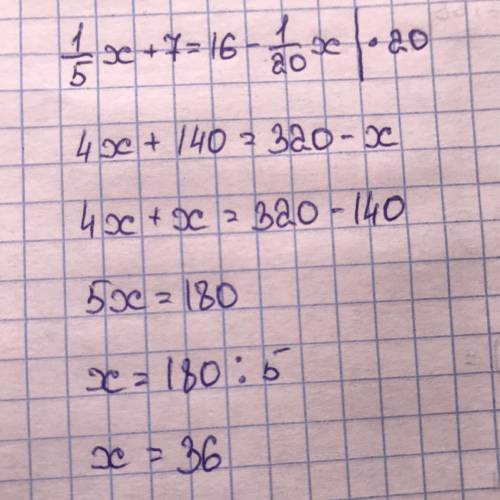 1/5 x + 7 = 16 - 1/20 x | · 20
4x + 140 = 320 - x
4x + x = 320 - 140
5x = 180
x = 180 : 5
x = 36